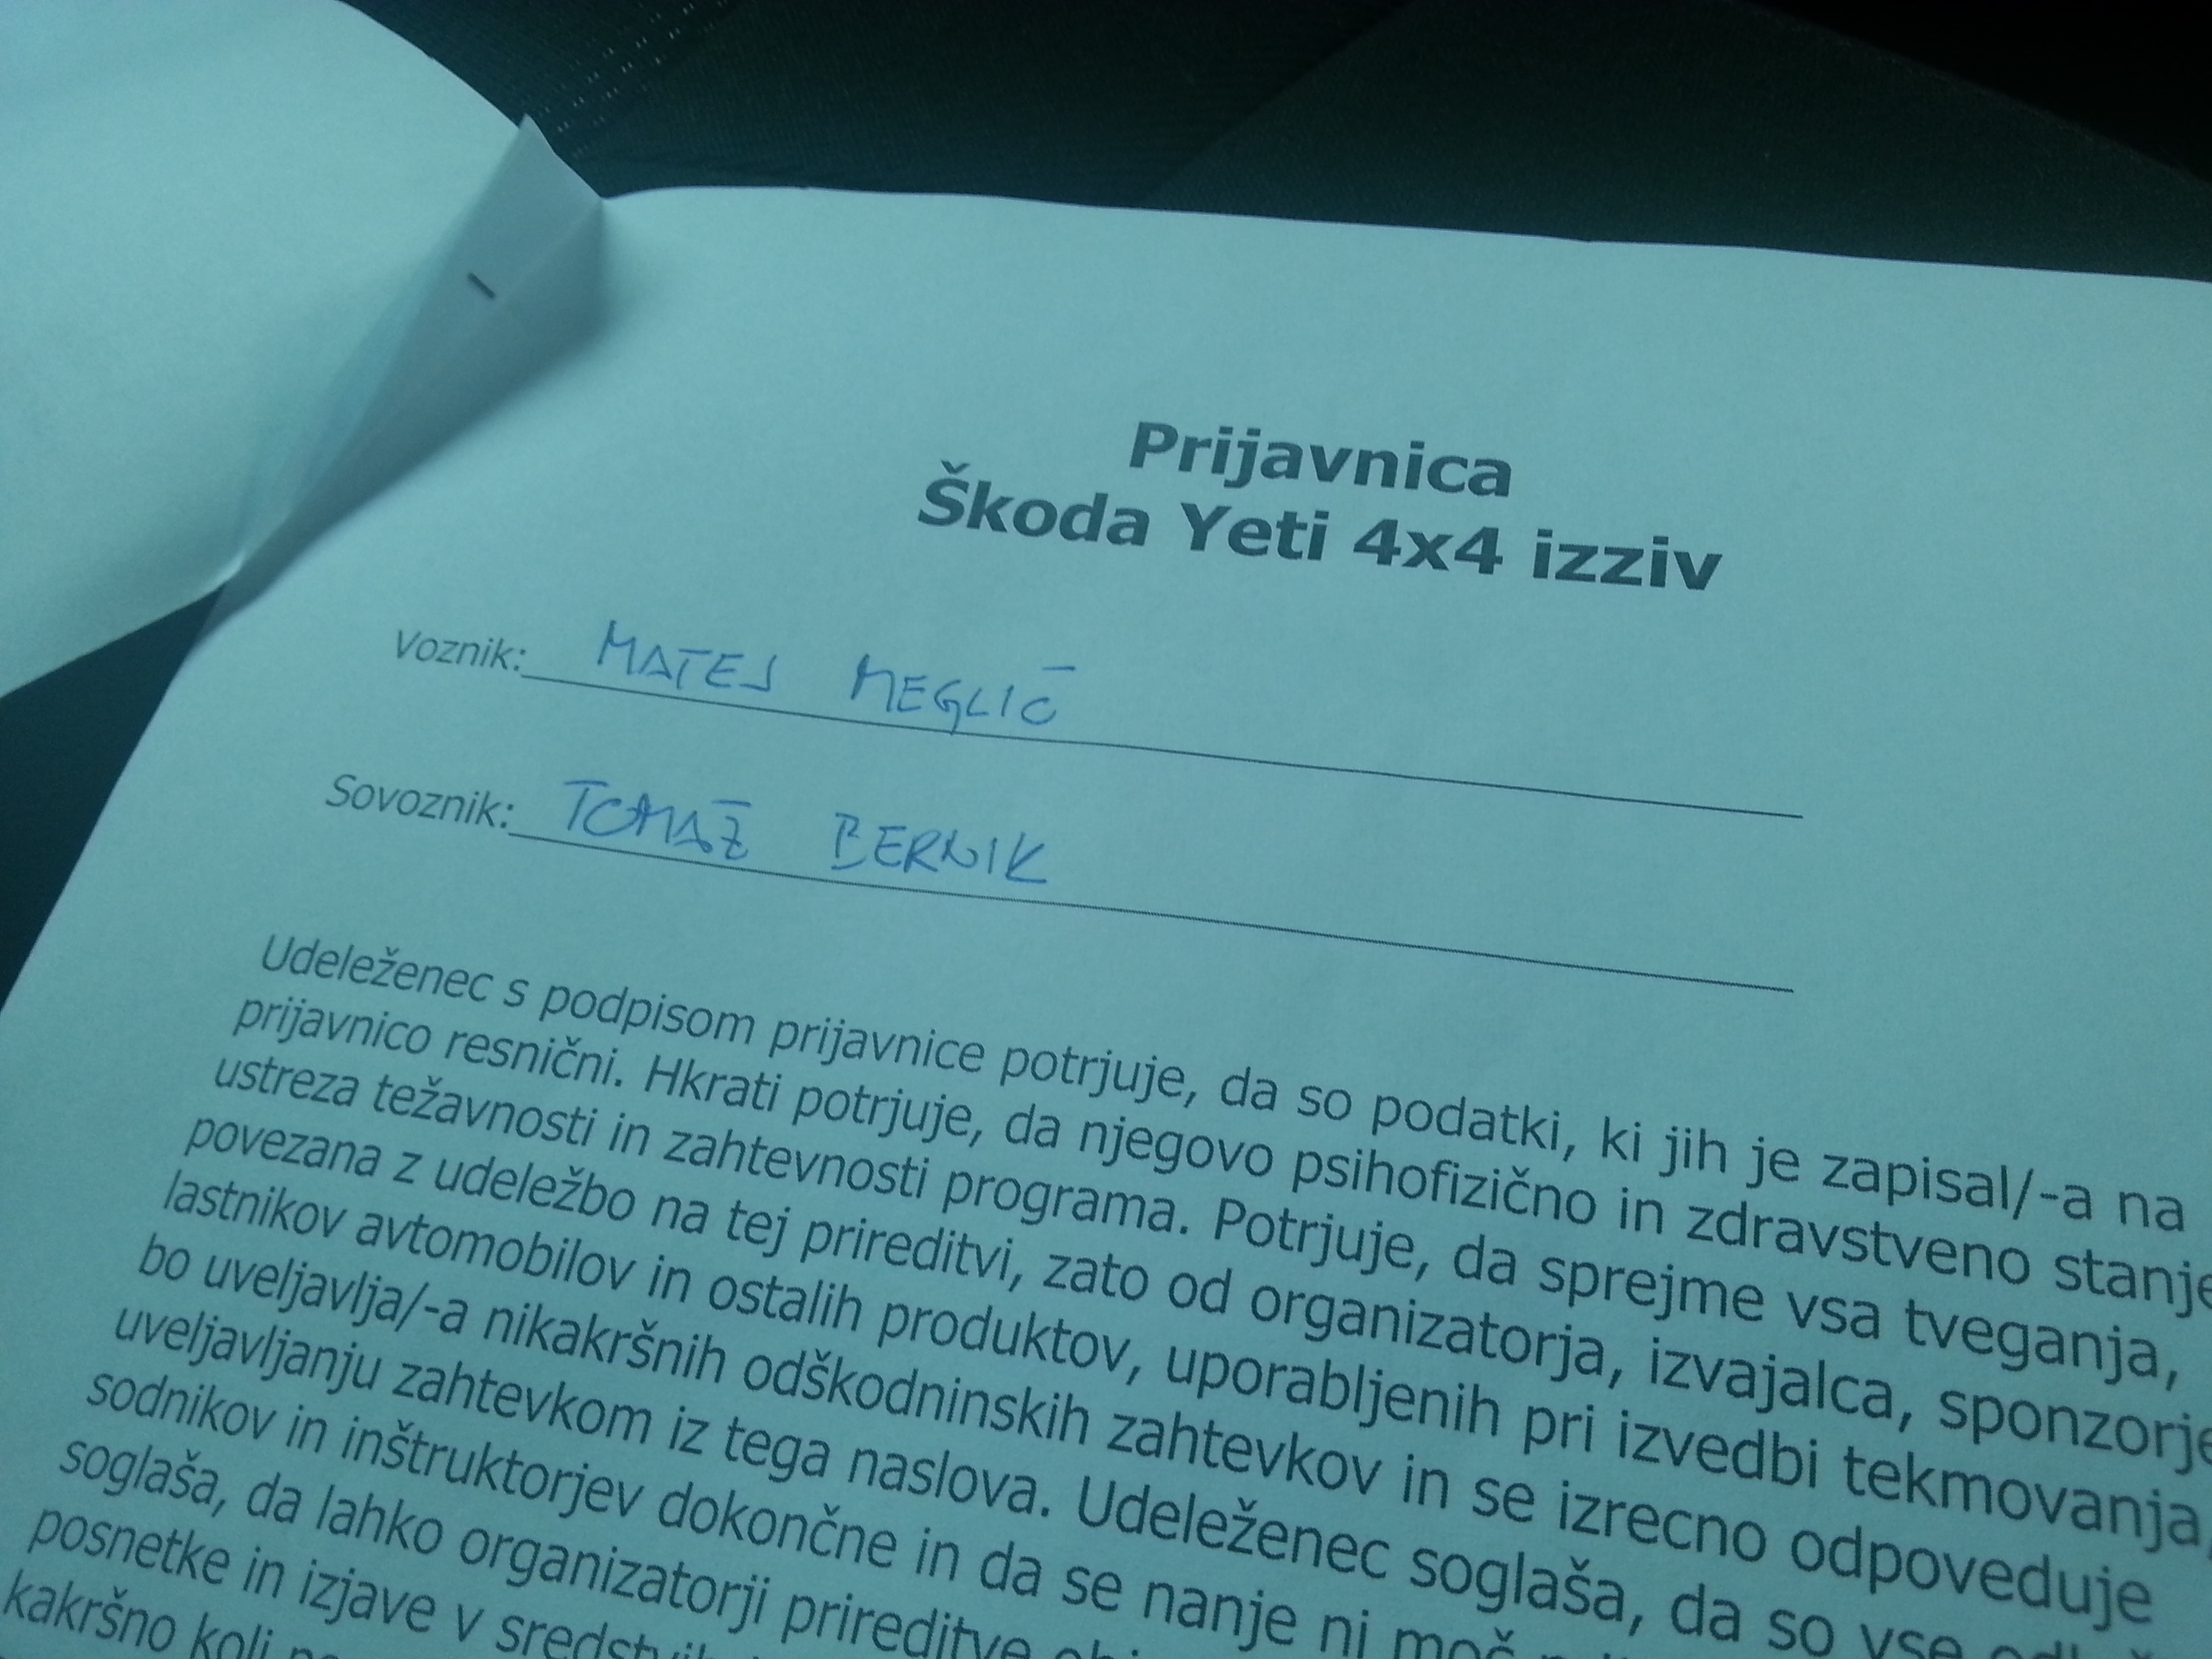 Prijavnica
Škoda Yeti 4x4 izziv
Voznik: MATEJ MEGLIČ
Sovoznik: TOMAŽ BERNIK
Udeleženec s podpisom prijavnice potrjuje, da so podatki, ki jih je zapisal/-a na
prijavnico resnični. Hkrati potrjuje, da njegovo psihofizično in zdravstveno stanje
ustreza težavnosti in zahtevnosti programa. Potrjuje, da sprejme vsa tveganja,
povezana z udeležbo na tej prireditvi, zato od organizatorja, izvajalca, sponzorje
lastnikov avtomobilov in ostalih produktov, uporabljenih pri izvedbi tekmovanja,
bo uveljavlja/-a nikakršnih odškodninskih zahtevkov in se izrecno odpoveduje
uveljavljanju zahtevkom iz tega naslova. Udeleženec soglaša, da so vse
sodnikov in inštruktorjev dokončne in da se nanje ni moč
soglaša, da lahko organizatorji prireditve
posnetke in izjave v
kakršno koli